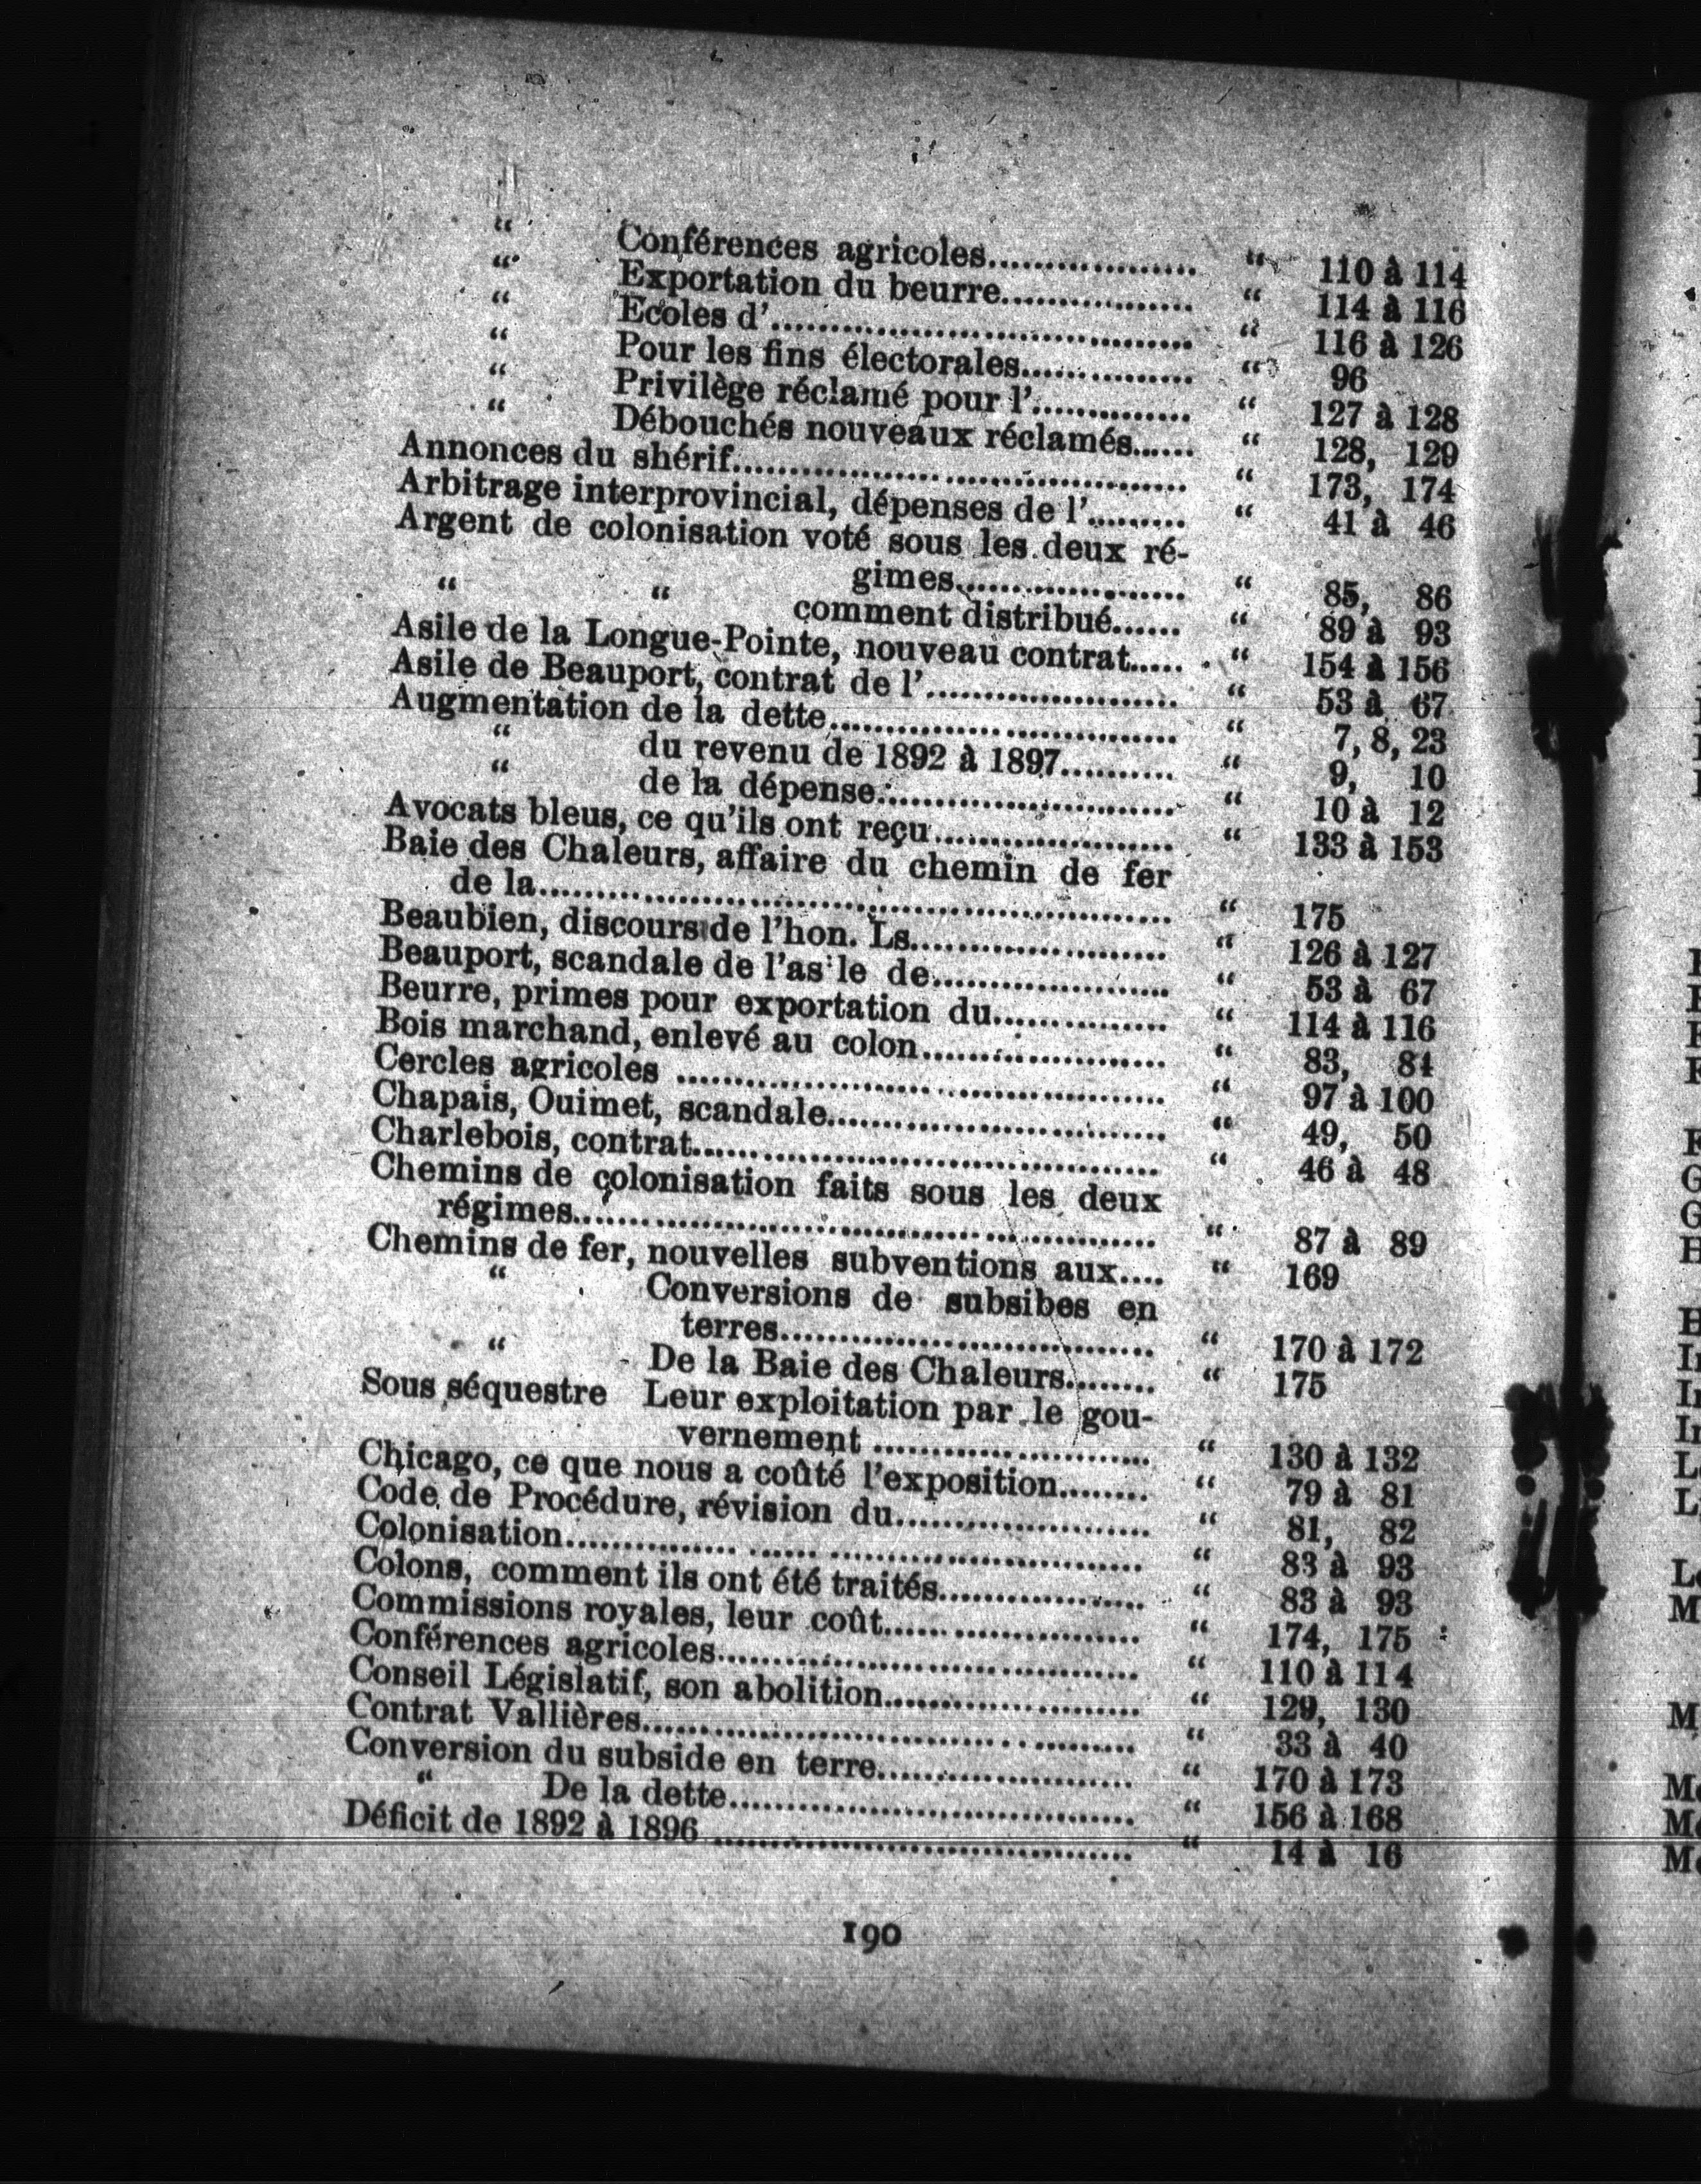 “ Conférences agricoles.................. “ 110 à 114
“ Exportation du beurre................ “ 114 à 116
“ Ecoles d’.................................... “ 116 à 126
“ Pour les fins électorales............... “ 96
“ Privilège réclamé pour l’.............. “ 127 à 128
“ Débouchés nouveaux réclamés...... “ 128, 129
Annonces du shérif...................................... “ 173, 174
Arbitrage interprovincial, dépenses de l’......... “ 41 à 46
Argent de colonisation voté sous les deux ré-
gimes.................... “ 85, 86
“ “ comment distribué...... “ 89 à 93
Asile de la Longue-Pointe, nouveau contrat..... “ 154 à 156
Asile de Beauport, contrat de l’..................... “ 53 à 67
Augmentation de la dette.............................. “ 7, 8, 23
“ du revenu de 1892 à 1897.......... “ 9, 10
“ de la dépense.......................... “ 10 à 12
Avocats bleus, ce qu’ils ont reçu..................... “ 133 à 153
Baie des Chaleurs, affaire du chemin de fer
de la...................................................... “ 175
Beaubien, discours de l’hon. Ls...................... “ 126 à 127
Beauport, scandale de l’as le de..................... “ 53 à 67
Beurre, primes pour exportation du............... “ 114 à 116
Bois marchand, enlevé au colon..................... “ 83, 84
Cercles agricoles .......................................... “ 97 à 100
Chapais, Ouimet, scandale............................. “ 49, 50
Charlebois, contrat........................................ “ 46 à 48
Chemins de colonisation faits sous les deux
régimes.................................................. “ 87 à 89
Chemins de fer, nouvelles subventions aux.... “ 169
“ Conversions de subsibes en
terres................................ “ 170 à 172
“ De la Baie des Chaleurs........ “ 175
Sous séquestre Leur exploitation par le gou-
vernement ........................ “ 130 à 132
Chicago, ce que nous a coûté l’exposition........ “ 79 à 81
Code de Procédure, révision du...................... “ 81, 82
Colonisation............... ...... ........................... “ 83 à 93
Colons, comment ils ont été traités.................. “ 83 à 93
Commissions royales, leur coût...................... “ 174, 175
Conférences agricoles.................................... “ 110 à 114
Conseil Législatif, son abolition...................... “ 129, 130
Contrat Vallières.......................................... “ 33 à 40
Conversion du subside en terre...................... “ 170 à 173
“ De la dette................................... “ 156 à 168
Déficit de 1892 à 1896 .................................... “ 14 à 16
190